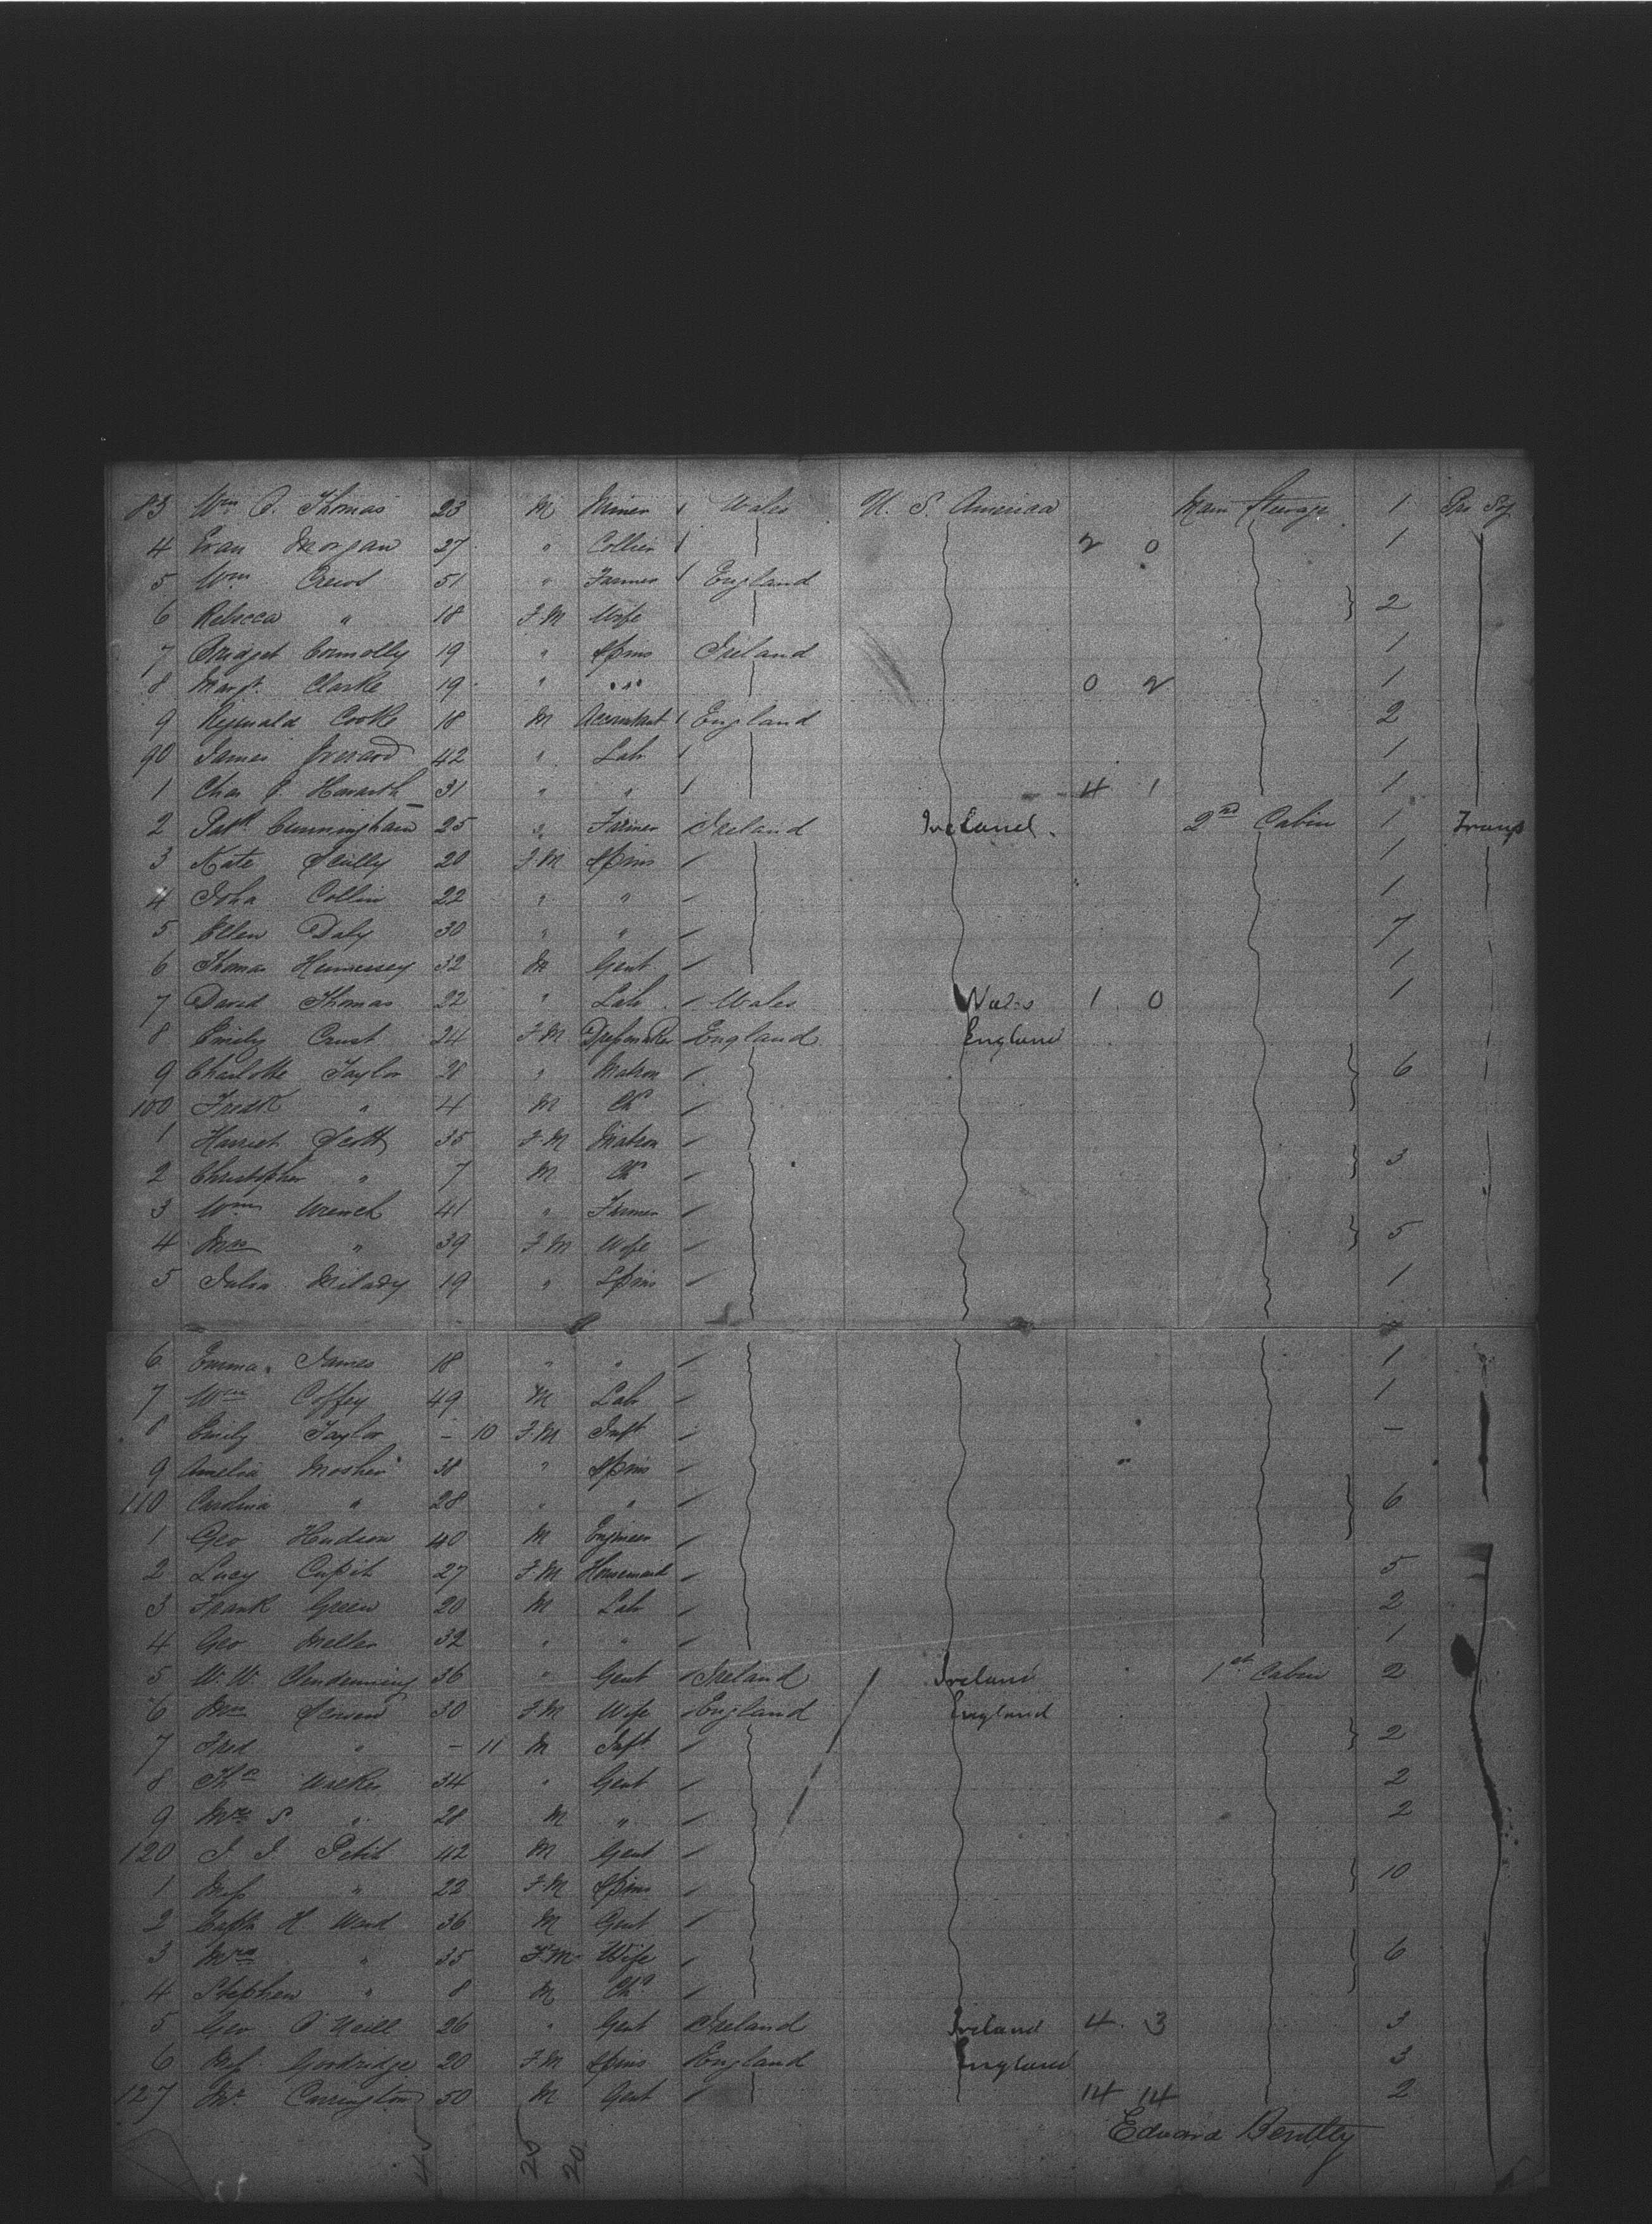 83 Wm P. Thomas 23 M Miner 1 Wales U. S. America Main Steerage 1
4 Evan Morgan 27 " Collier 1 2 0 1
5 Wm 51 " Farmer 1 England
6 Rebecca " 18 F.M Wife } 2
7 Bridget Connolly 19 " Spins Ireland 1
8 Margt. Clarke 19 " " " 0 2 1
9 Reginald Cooke 18 M Accountant 1 England 2
90 James 42 " Lab 1 1
1 Chas P. Howarth 31 " " 1 4 1 1
2 Patk Cunningham 25 " Farmer Ireland Ireland 2nd Cabin 1 Trans
3 Kate Scully 20 F.M Spins 1
4 Joha Collin 22 " " 1
5 Ellen Daly 30 " " 7
6 Thomas Hennessey 32 M Gent 1
7 David Thomas 22 " Lab Wales Wales 1 0 1
8 Emily Crust 24 F.M Dressmaker England England
9 Charlotte Taylor 28 " Matron } 6
100 Fredk " 4 M Ch
1 Harriet Scott 35 F.M Matron
2 Christopher " 7 M Ch } 3
3 Wm Wrench 41 " Farmer
4 Mrs " 39 F.M Wife } 5
5 Julia Milady 19 " Spins 1
6 Emma James 18 " " 1
7 Wm Coffey 49 M Lab 1
8 Emily Taylor - 10 F.M Inft -
9 Amelia Mosher 38 " Spins
110 Carolina " 28 " " } 6
1 Geo Hudson 40 M Engineer
2 Lucy Cupit 27 F.M Housemaid 5
3 Frank Green 20 M Lab 2
4 Geo Meller 32 " " 1
5 W. W. Clendenning 36 " Gent Ireland Ireland 1st Cabin 2
6 Mrs 30 F.M Wife England England
7 Fred " - 11 M Inft } 2
8 Thos Walker 34 " Gent 2
9 Mrs S " 28 M " 2
120 J. J. Petit 42 M Gent
1 Miss " 22 F.M Spins } 10
2 Captn H Ward 36 M Gent
3 Mrs " 35 F.M Wife } 6
4 Stephen " 8 M Chd
5 Geo O'Neill 26 " Gent Ireland Ireland 4 3 3
6 Miss Goodridge 20 F.M Spins England England 3
127 Mr. Carrington 50 M Gent 14 14 2
Edward Bentley
45 25 20